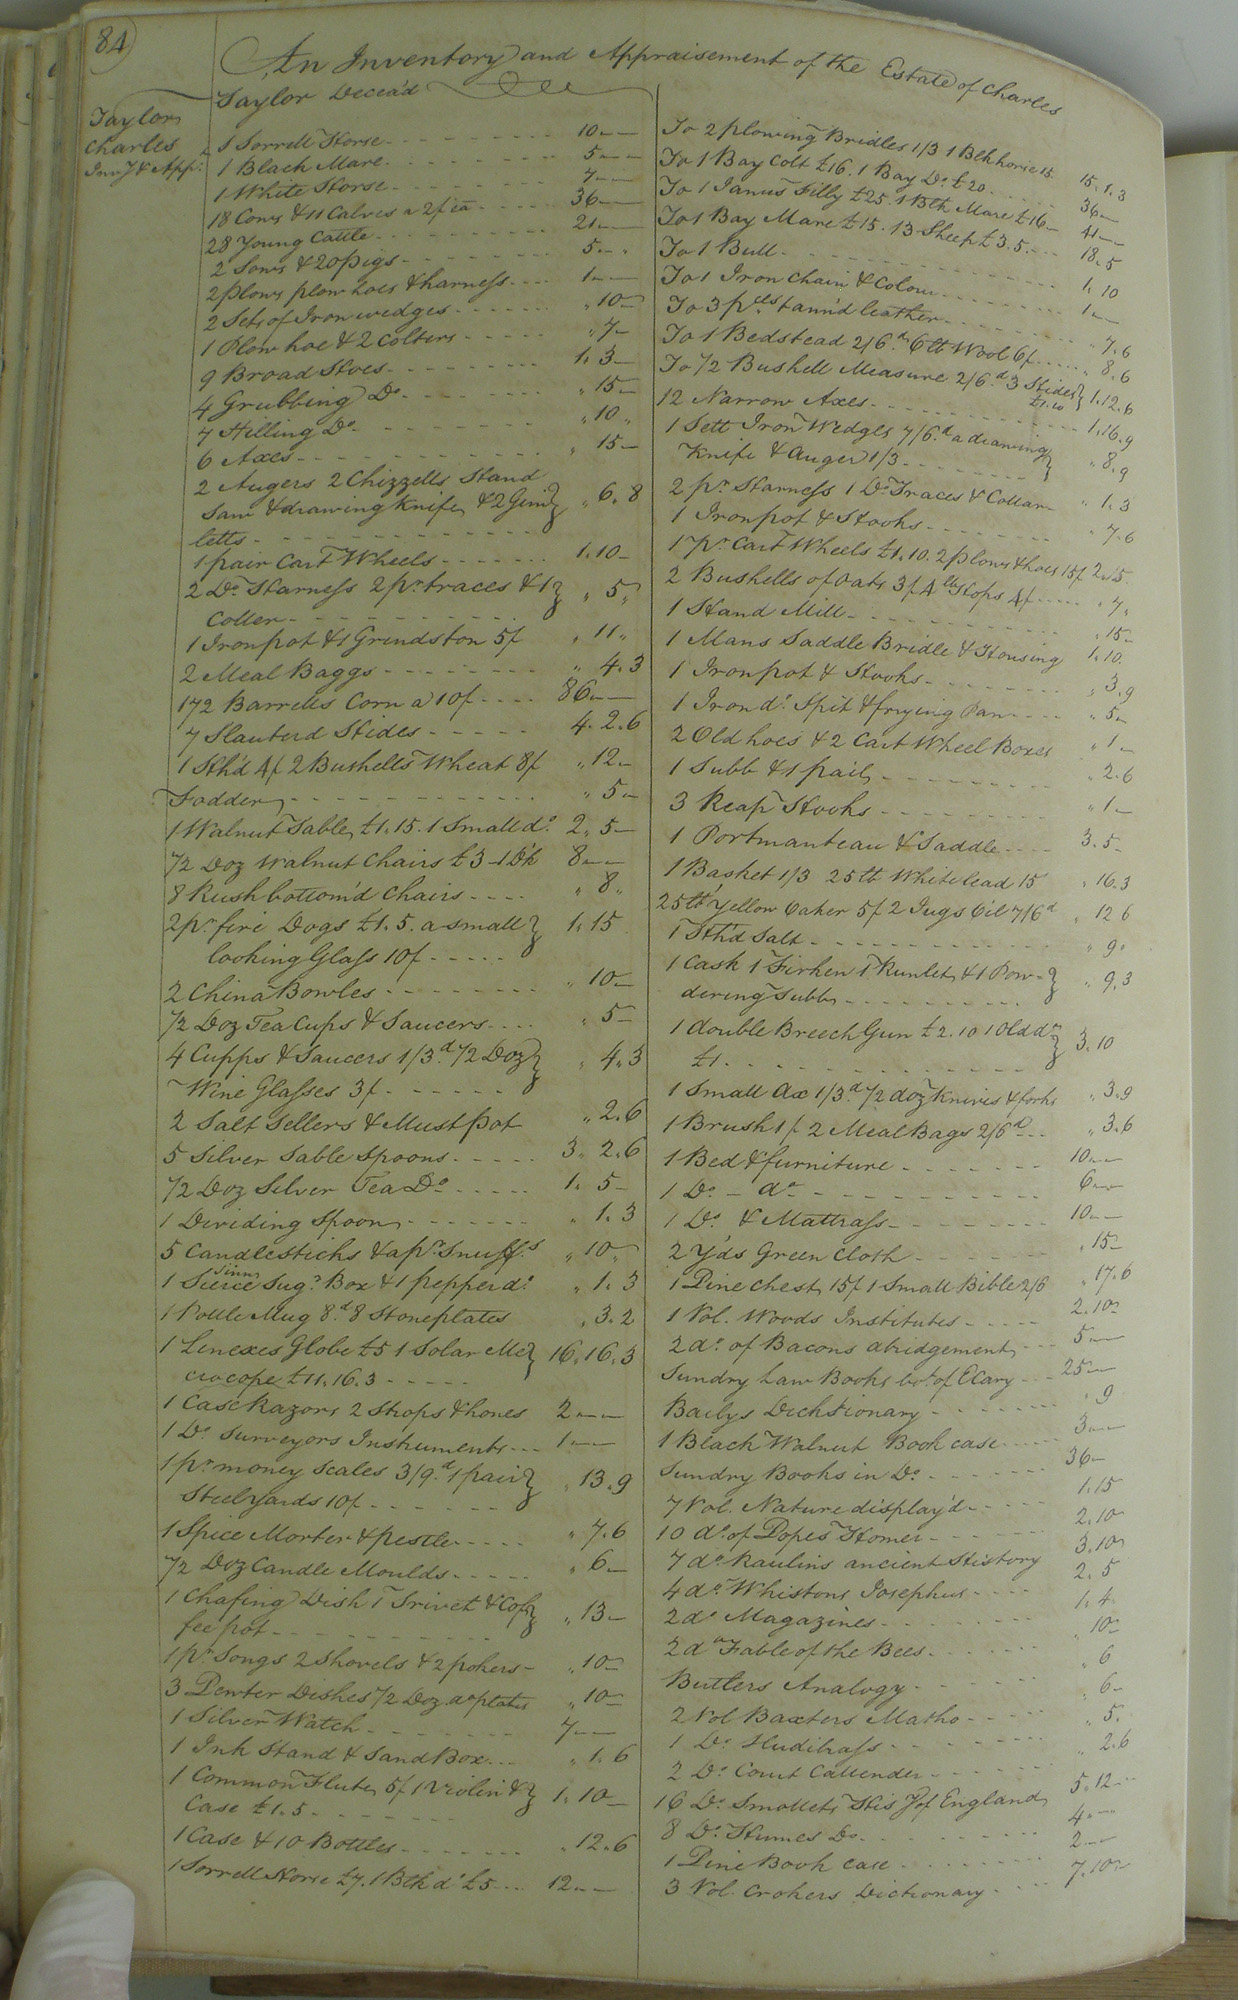 84
An Inventory and Appraisement of the Estate of Charles
Taylor Decea'd
Taylor
Charles
Inv.y & App.t
1 Sorrell Horse 10 --
1 Black Mare 5 --
1 White Horse 7 --
18 Cows & 11 Calves a 2£ ea 36 --
28 Young Cattle 21 --
2 Sows & 20 pigs 5 - "
2 plows plow hoes & harness 1 --
2 Sets of Iron wedges " 10 -
1 Plow hoe & 2 Colters " 7 -
9 Broad Hoes 1. 3 -
4 Grubbing Do. " 15 -
7 Hilling Do. " 10 "
6 Axes " 15 -
2 Augers 2 Chizzells Hand
Saw & drawing Knife & 2 Gim " 6. 8
letts
1 pair Cart Wheels 1. 10 -
2 Do. Harness 2 pr. traces & 1 " 5 "
Coller
1 Iron pot & 1 Grindston 5/ " 11 "
2 Meal Baggs " 4. 3
172 Barrells Corn a 10/ 86 --
7 Slauterd Hides 4. 2. 6
1 Hh'd 4/ 2 Bushells Wheat 8/ " 12 -
Fodder " 5 -
1 Walnut Table £1. 15. 1 Small do. 2. 5 -
1/2 Doz Walnut Chairs £3 - 1 D'k 8 --
8 Rush bottom'd Chairs " 8 "
2 pr. fire Dogs £1. 5. a small 1. 15
looking Glass 10/
2 China Bowles " 10 -
1/2 Doz Tea Cups & Saucers " 5 -
4 Cupps & Saucers 1/3d. 1/2 Doz " 4. 3
Wine Glasses 3/
2 Salt Sellers & Must pot " 2. 6
5 Silver Table Spoons 3. 2. 6
1/2 Doz Silver Tea Do. 1. 5 -
1 Dividing Spoon " 1. 3
5 Candlesticks & a pr. Snuffs " 10 "
Tinn
1 Sierce Sugr. Box & 1 pepper do. " 1. 3
1 Pottle Mug 8d. 8 Stone plates " 3. 2
1 Senexes Globe £5 1 Solar Me 16. 16. 3
crocope £11. 16. 3
1 Case Razors 2 Strops & hones 2 --
1 Do. Surveyors Instruments 1 --
1 pr. money Scales 3/9d. 1 pair " 13. 9
Steelyards 10/
1 Spice Morter & pestle " 7. 6
1/2 Doz Candle Moulds " 6 -
1 Chafing Dish 1 Trivet & Cof " 13 -
fee pot
1 pr. Tongs 2 Shovels & 2 pokers " 10 -
3 Pewter Dishes 1/2 Doz do. plates " 10 -
1 Silver Watch 7 --
1 Ink Stand & Sand Box " 1. 6
1 Common Flute 5/ 1 Violin & 1. 10 -
Case £1. 5
1 Case & 10 Bottles " 12. 6
1 Sorrell Horse £7. 1 Blk do. £5 12 --
To 2 plowing Bridles 1/3 1 Blk horse 15 15. 1. 3
To 1 Bay Colt £16. 1 Bay Do. £20 36 -
To 1 Janus Filly £25. 1 Blk Mare £16 41 --
To 1 Bay Mare £15. 13 Sheep £3. 5 18. 5
To 1 Bull 1. 10
To 1 Iron Chain & Colour 1 --
To 3 pces tann'd leather " 7. 6
To 1 Bedstead 2/6d. 6 lb Wool 6/ " 8. 6
To 1/2 Bushell Measure 2/6d 3 Hides 1. 12. 6
£1. 10
12 Narrow Axes 1. 16. 9
1 Sett Iron Wedges 7/6d a drawing
Knife & Auger 1/3 " 8. 9
2 pr. Harness 1 Do. Traces & Collar " 1. 3
1 Iron pot & Hooks " 7. 6
1 pr. Cart Wheels £1. 10. 2 plows & hoes 15/ 2. 5
2 Bushells of oats 3/ 4 lb Hops 4/ " 7 "
1 Hand Mill " 15 -
1 Mans Saddle Bridle & Housing 1. 10
1 Iron pot & Hooks " 3. 9
1 Iron do. Spit & frying Pan " 5 -
2 Old hoes & 2 Cart Wheel Boxes " 1 -
1 Tubb & 1 pail " 2. 6
3 Reap Hooks " 1 -
1 Portmanteau & Saddle 3. 5 -
1 Basket 1/3 25 lb White lead 15 " 16. 3
25 lb Yellow Oaker 5/ 2 Jugs Oil 7/6d " 12 6
1 Hh'd Salt " 9 "
1 Cask 1 Firken 1 Runlet & 1 Pow- " 9. 3
dering Tubb
1 double Breech Gun £2. 10 1 Old do. 3. 10
£1
1 Small Ax 1/3d. 1/2 doz Knives & forks " 3. 9
1 Brush 1/ 2 Meal Bags 2/6d " 3. 6
1 Bed & furniture 10 --
1 Do. - do. 6 --
1 Do. & Mattrass 10 --
2 Y'ds Green Cloth " 15 -
1 Pine Chest 15/ 1 Small Bible 2/6 " 17. 6
1 Vol. Woods Institutes 2. 10 -
2 do. of Bacons abridgement 5 --
Sundry Law Books bot. of E Cary 25 --
Bailys Dichtionary " 9
1 Black Walnut Book case 3 --
Sundry Books in Do. 36 -
7 Vol. Nature display'd 1. 15
10 do. of Popes Homer 2. 10 -
7 do. Raulins ancient History 3. 10 -
4 do. Whistons Josephus 2. 5
2 do. Magazines 1. 4
2 do. Fable of the Bees " 10 -
Butlers Analogy " 6
2 Vol Baxters Matho " 6 -
1 Do. Hudibrass " 5.
2 Do. Court Callender " 2. 6
16 Do. Smollets Hisy of England 5. 12 -
8 Do. Humes Do. 4 --
1 Pine Book case 2 --
3 Vol. Crokers Dictionary 7. 10 -